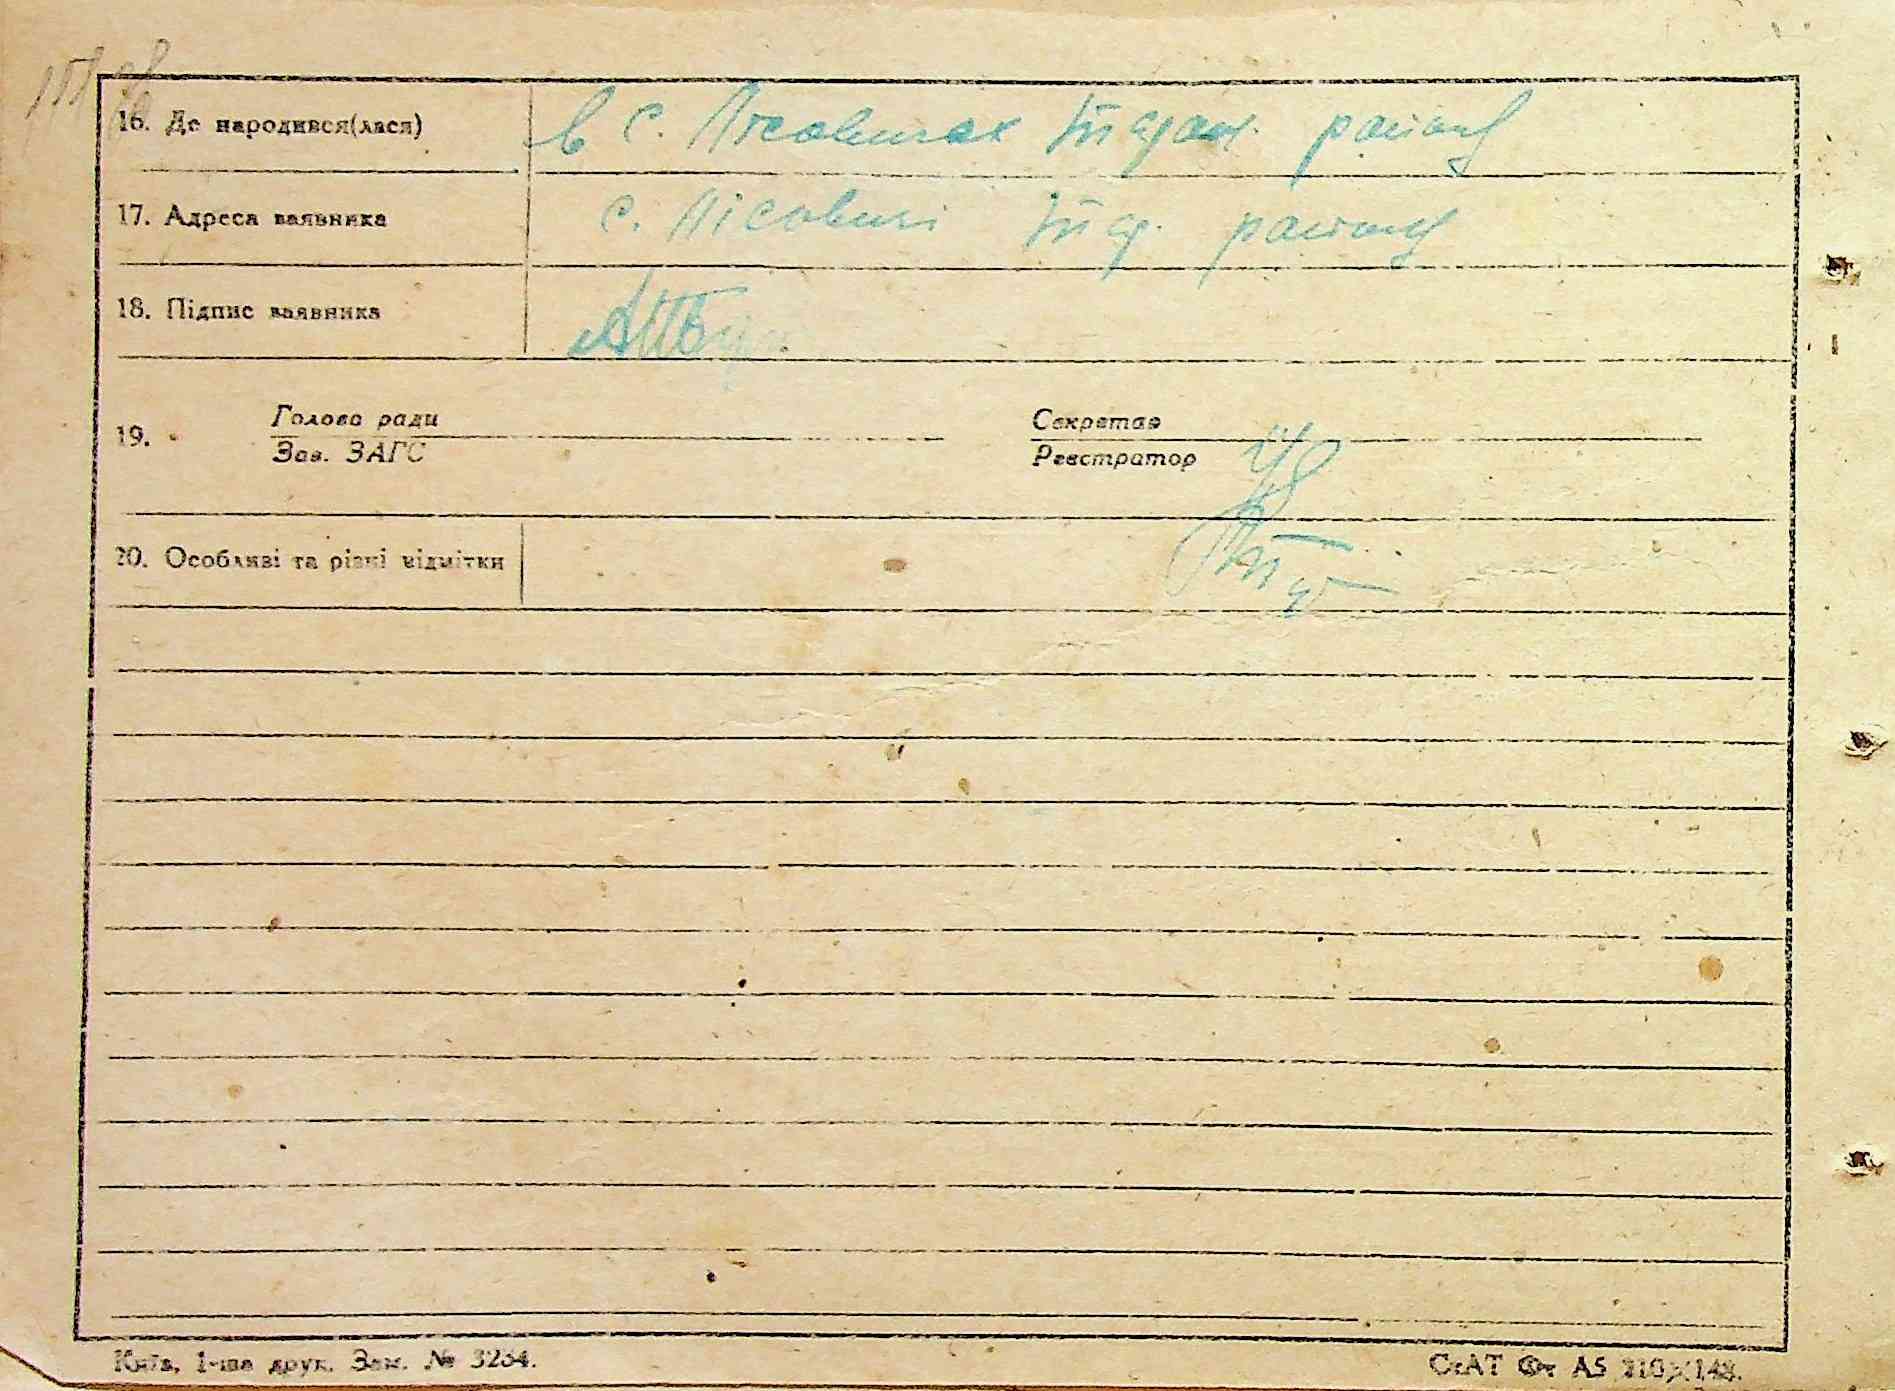 16. Де народився(лася) в с. Лісовичах Тащан. району
17. Адреса заявника с. Лісовичі Тащ. району
18. Підпис заявника
19. Голова ради Секретар
Зав. ЗАГС Реєстратор
20. Особливі та різні відмітки
Київ, 1-ша друк. Зам. № 3264.
СтАТ Фт А5 210×148.